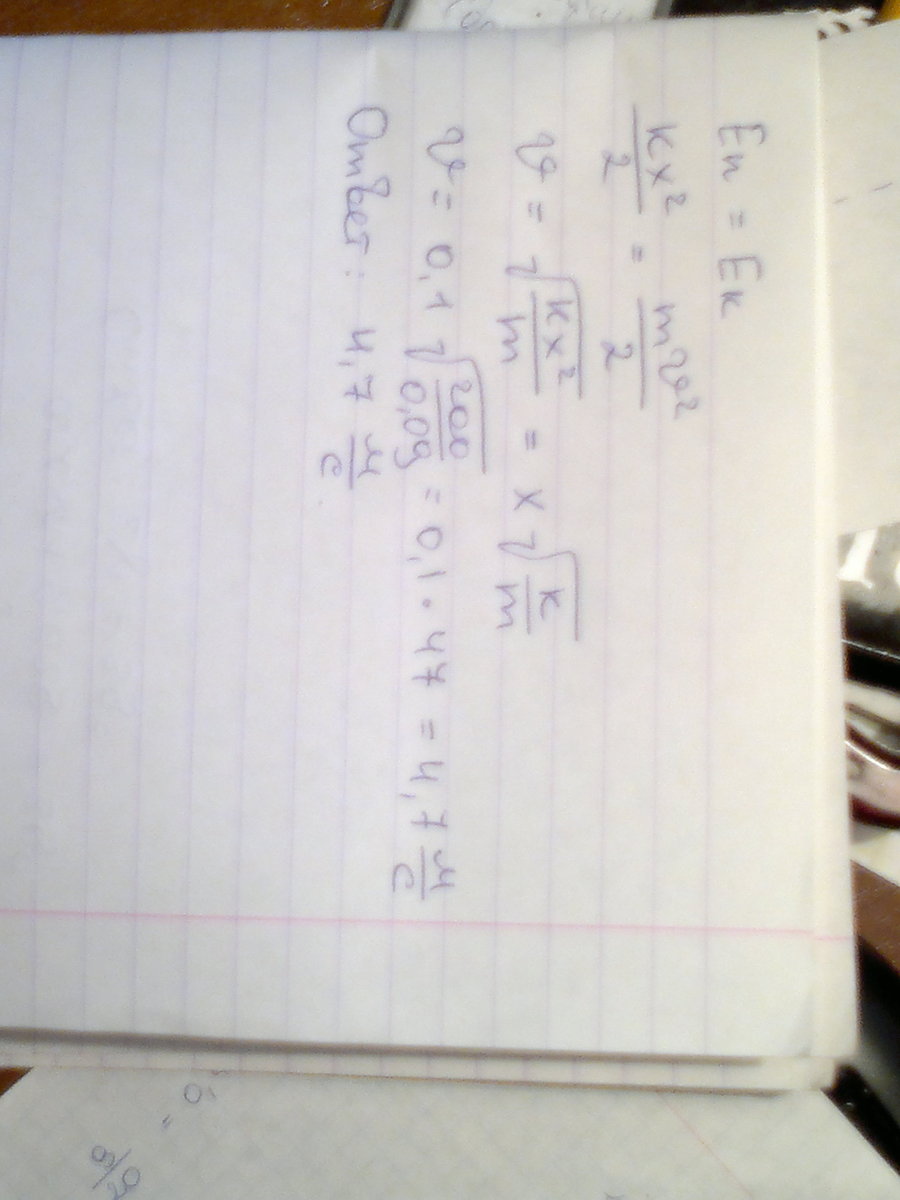 Eп = Eк
kx²/2 = mv²/2
v = √(kx²/m) = x √(k/m)
v = 0,1 √(200/0,09) = 0,1 · 47 = 4,7 м/с
Ответ: 4,7 м/с
9/20 = 0,